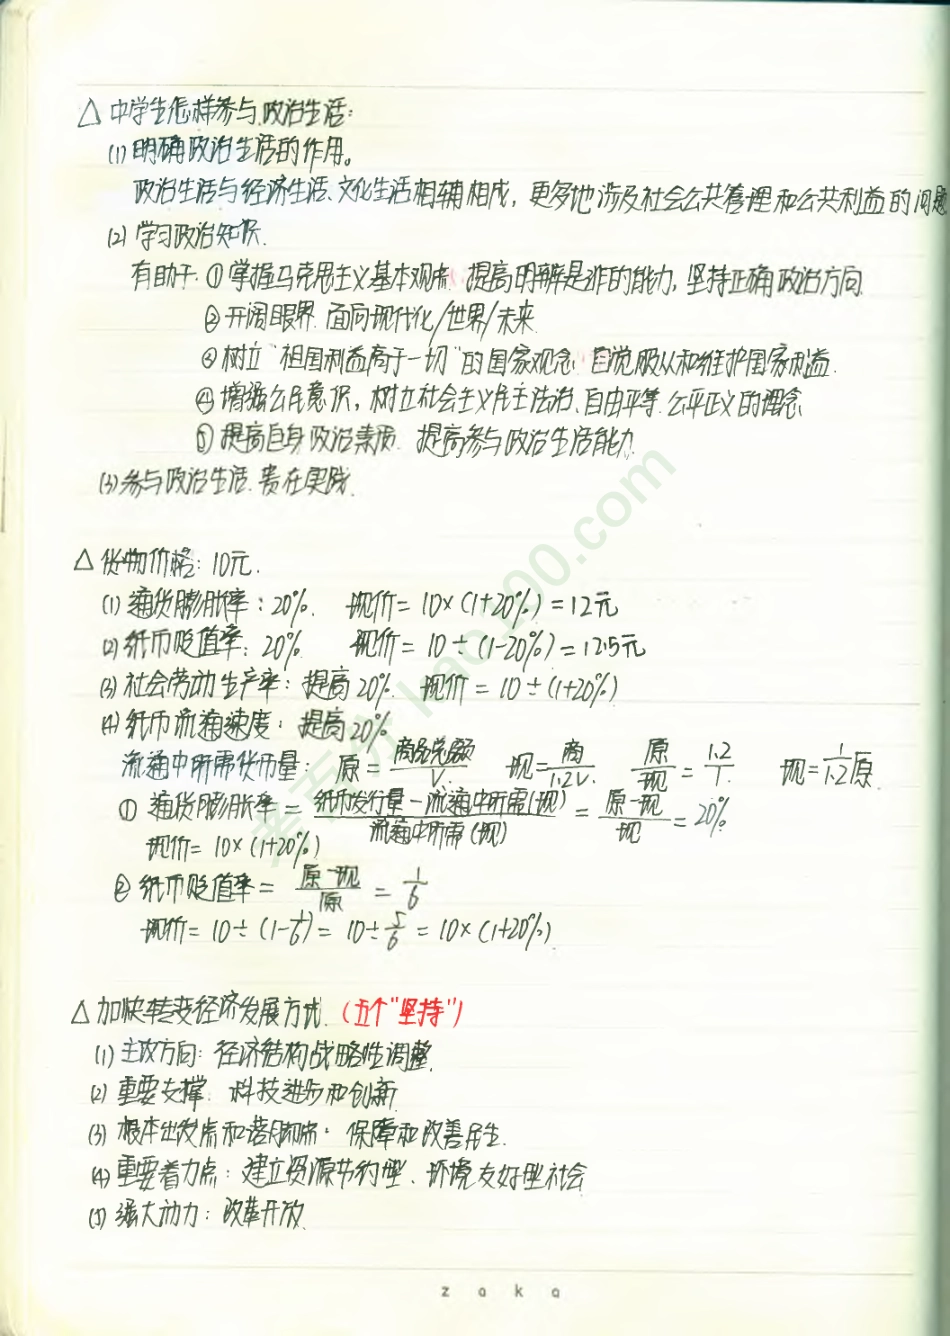 △ 中学生怎样参与政治生活:
(1) 明确政治生活的作用。
政治生活与经济生活、文化生活相辅相成，更多地涉及社会公共管理和公共利益的问题
(2) 学习政治知识.
有助于: ① 掌握马克思主义基本观点. 提高明辨是非的能力, 坚持正确政治方向.
② 开阔眼界. 面向现代化/世界/未来
③ 树立“祖国利益高于一切”的国家观念. 自觉服从和维护国家利益.
④ 增强公民意识, 树立社会主义民主法治、自由平等、公平正义的理念.
⑤ 提高自身政治素质. 提高参与政治生活能力.
(3) 参与政治生活. 贵在实践.
△ 货物价格: 10元.
(1) 通货膨胀率: 20%. 现价= 10×(1+20%) = 12元
(2) 纸币贬值率: 20% 现价= 10÷(1-20%) = 12.5元
(3) 社会劳动生产率: 提高20%. 现价 = 10÷(1+20%)
(4) 纸币流通速度: 提高20%
流通中所需货币量: 原= 商品总额/V. 现= 商/1.2V. 原/现 = 1.2/1. 现= 1/1.2 原.
① 通货膨胀率 = 纸币发行量-流通中所需(现)/流通中所需(现) = 原-现/现 = 20%
现价= 10×(1+20%)
② 纸币贬值率 = 原-现/原 = 1/6
现价= 10÷(1-1/6) = 10÷5/6 = 10×(1+20%).
△ 加快转变经济发展方式. (五个“坚持”)
(1) 主攻方向: 经济结构战略性调整.
(2) 重要支撑: 科技进步和创新.
(3) 根本出发点和落脚点: 保障和改善民生.
(4) 重要着力点: 建立资源节约型、环境友好型社会
(5) 强大动力: 改革开放.
考百分 kao100.com
zaka